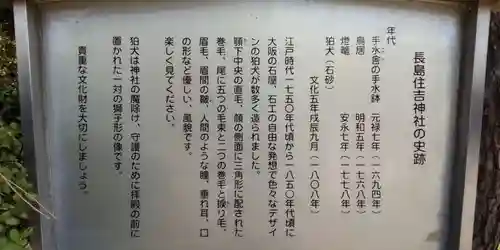 長島住吉神社の史跡
年代
手水舎の手水鉢　元禄七年（一六九四年）
鳥居　明和五年（一七六八年）
燈篭　安永七年（一七七八年）
狛犬（石砂）
文化五年戊辰九月（一八〇八年）
江戸時代一七五〇年代頃から一八五〇年代頃に
大阪の石屋、石工の自由な発想で色々なデザイ
ンの狛犬が数多く造られました。
顎下中央の直毛、顔の側面に三角形に配された
巻毛、尾に五つの毛束と二つの巻毛と捩り毛、
眉毛、眉間の皺、人間のような瞳、垂れ耳、口
の形など優しい、風貌です。
楽しく見てください。
狛犬は神社の魔除け、守護のために拝殿の前に
置かれた一対の獅子形の像です。
貴重な文化財を大切にしましょう。